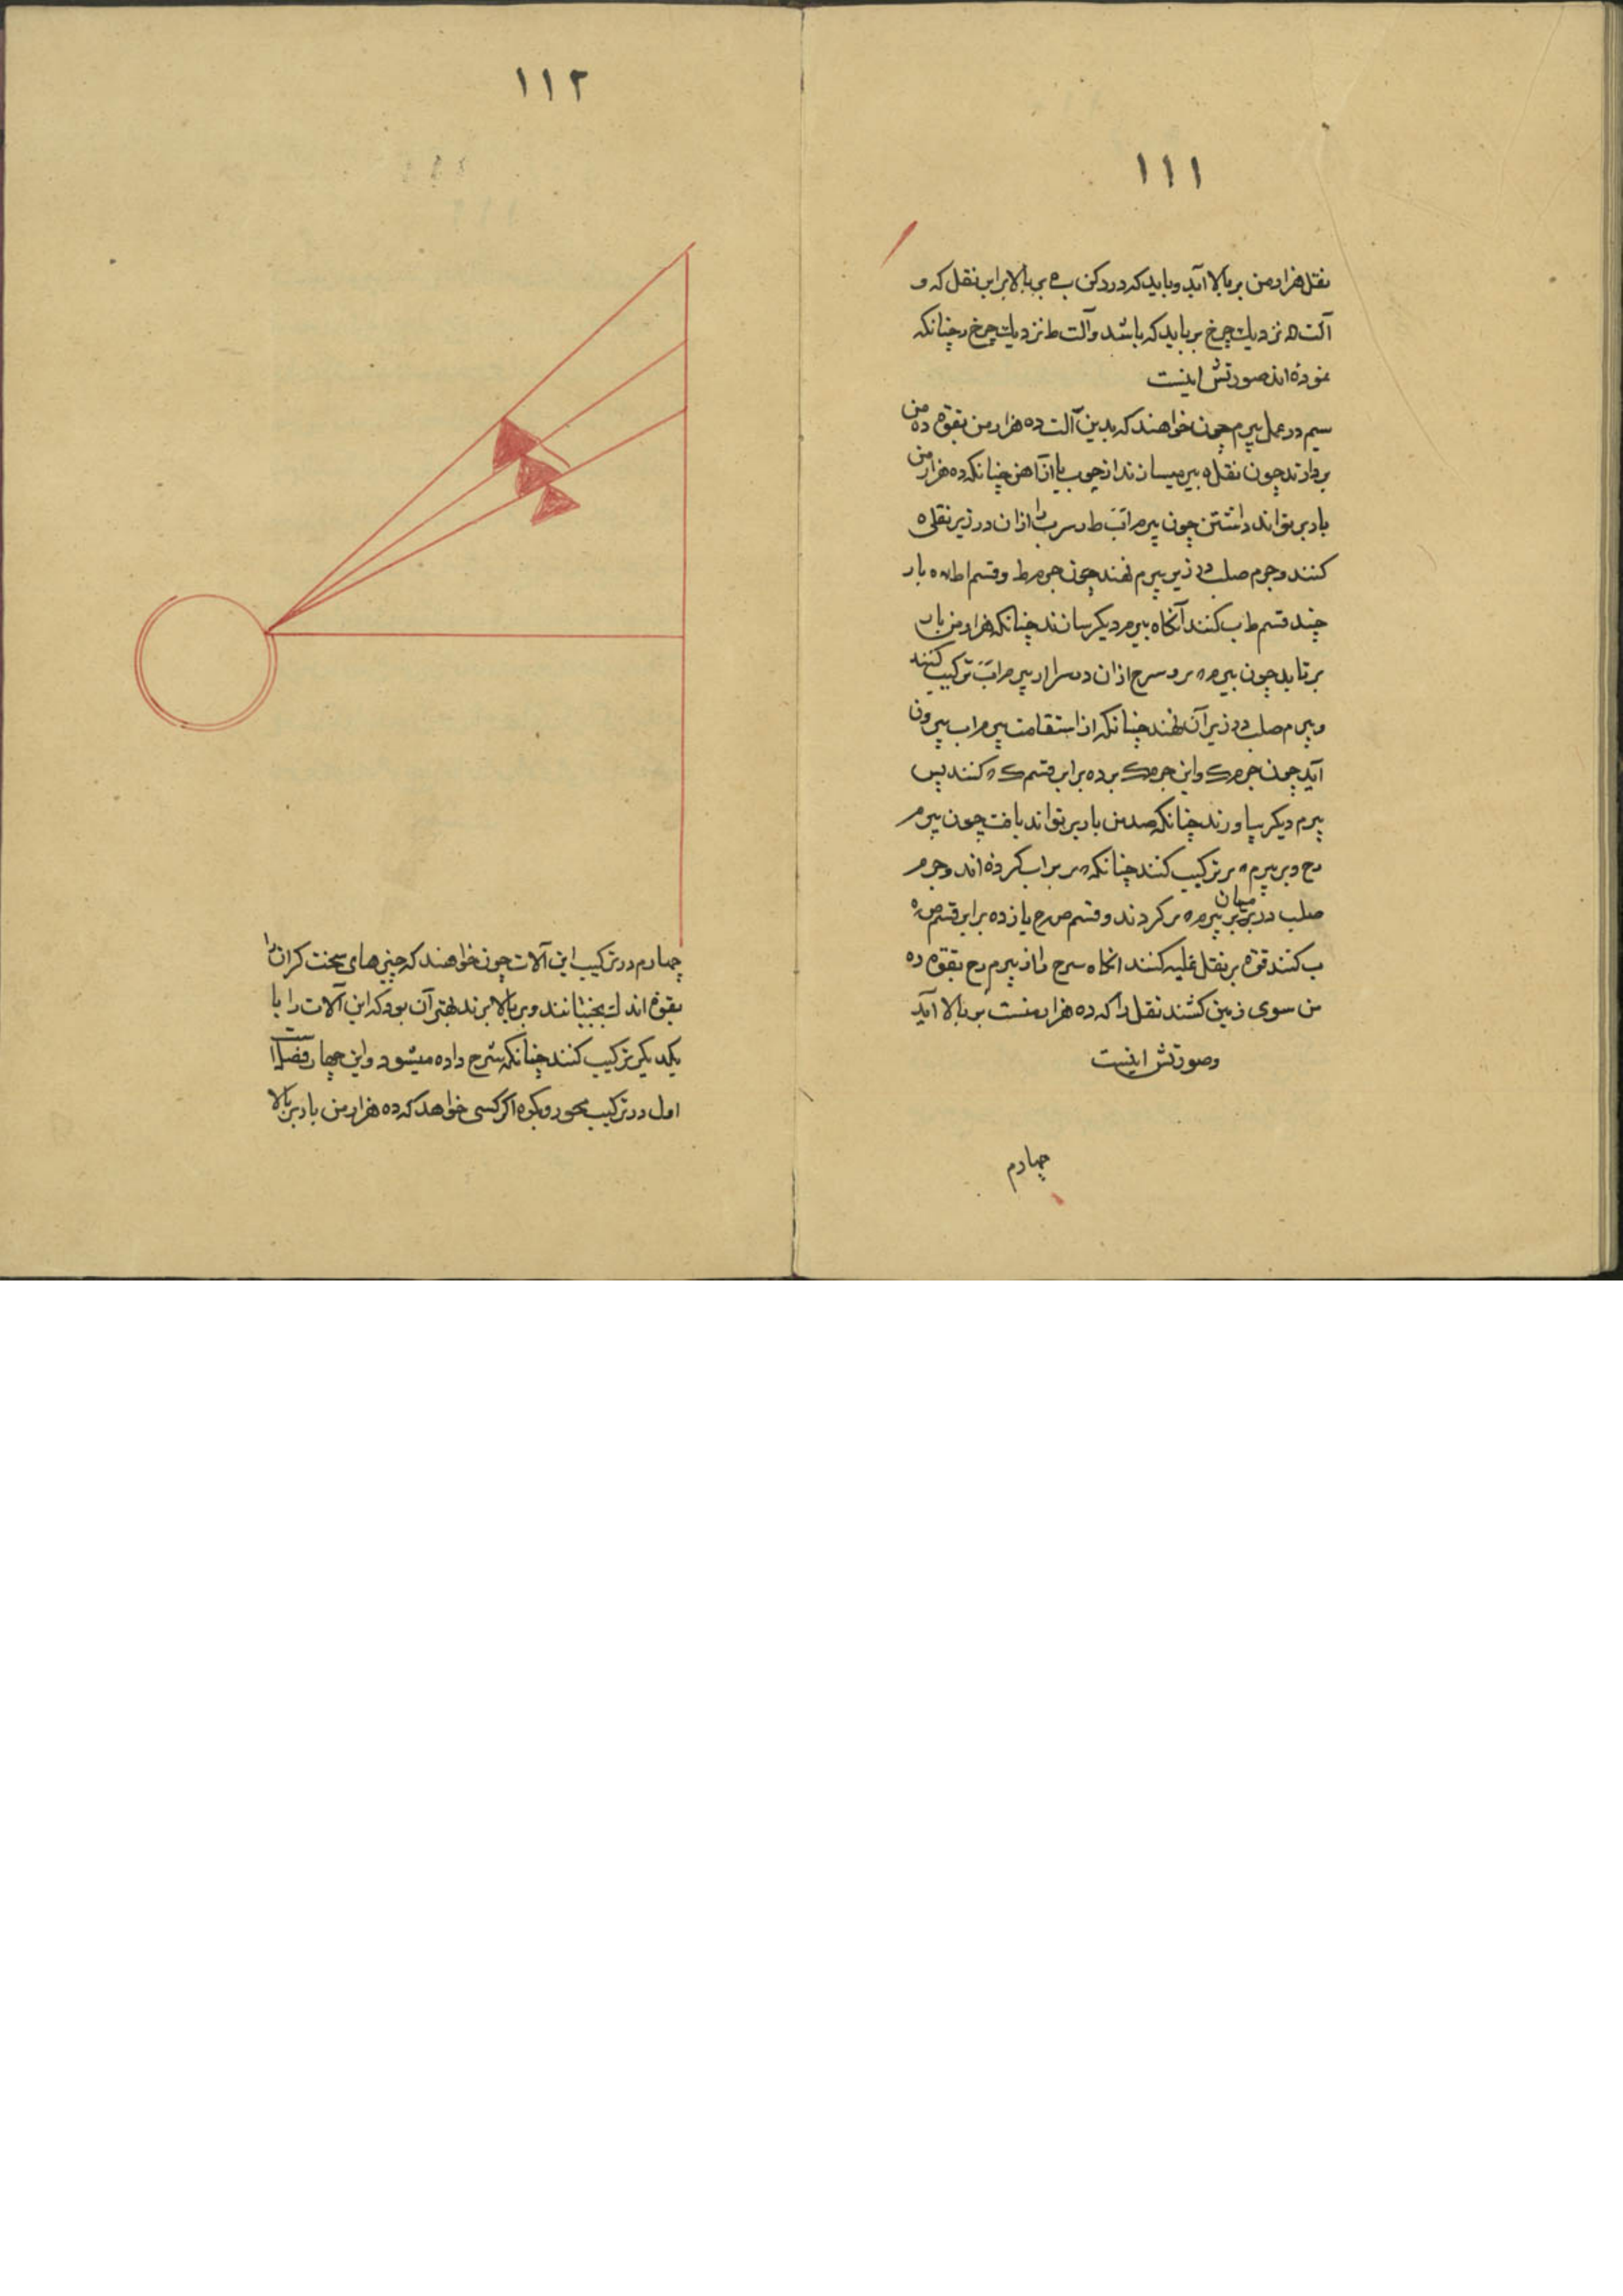 ۱۱۱
نقل هزار من بر بالا آید و باید که در دکن ب بر بالا برابر نقل که و
آلت ه نزدیك چرخ بر باید که باشد و آلت ط نزدیك چرخ ر چنانکه
نموده اند صورتش اینست
سیم در عمل بیرم چون خواهند که بدین آلت ده هزار من بقوة ده من
بردارند چون نقل ه بیرمیسازند از چوب یا از آهن چنانکه ده هزار من
بار بر تواند داشتن چون بیرم اب ط و سر ب را ازان در زیر نقل ه
کنند و جرم صلب در زیر بیرم نهند چون جرم ط و قسم اط ده بار
چند قسم ط ب کنند آنکاه بیرم دیکر سانند چنانکه هزار من بار
بر تابد چون بیرم ه ر و سر ازان در سر ا از بیرم اب ترکیب کنند
و بیرم صلب در زیر آن نهند چنانکه از استقامت بیرم اب بیرون
آید چون جرم ک و این جرم ک بر ده برابر قسم ک ه کنند پس
بیرم دیکر بیاورند چنانکه صد من بار بر تواند یافت چون بیرم
رح و بر بیرم ه ر ترکیب کنند چنانکه ه ر بر اب کرده اند و جرم
صلب در میان بیرم ه ر کردند و قسم ص ح یازده برابر قسم ص ه
ب کنند قوة بر نقل غلبه کنند انکاه سر ح را از بیرم رح بقوة ده
من سوی زمین کشند نقل را که ده هزار منست بر بالا آید
و صورتش اینست
چهارم
۱۱۲
چهارم در ترکیب این آلات چون خواهند که چیزهای سخت کران را
بقوة اندك بجنبانند و بر بالا برند بهتر آن بود که این آلات را با
یکدیکر ترکیب کنند چنانکه شرح داده میشود و این چهار فصل است
اول در ترکیب محور و بکره اکر کسی خواهد که ده هزار من بار بر بالا